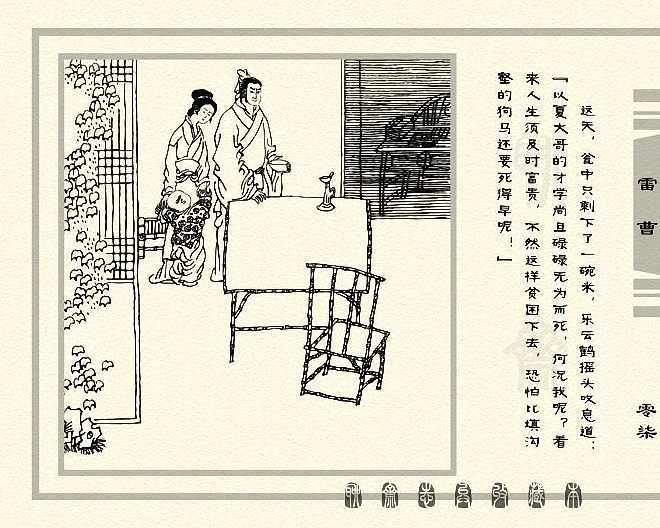 这天，瓮中只剩下了一碗米，乐云鹤摇头叹息道：
“以夏大哥的才学尚且碌碌无为而死，何况我呢？看
来人生须及时富贵，不然这样贫困下去，恐怕比填沟
壑的狗马还要死得早呢！”
雷曹
零柒